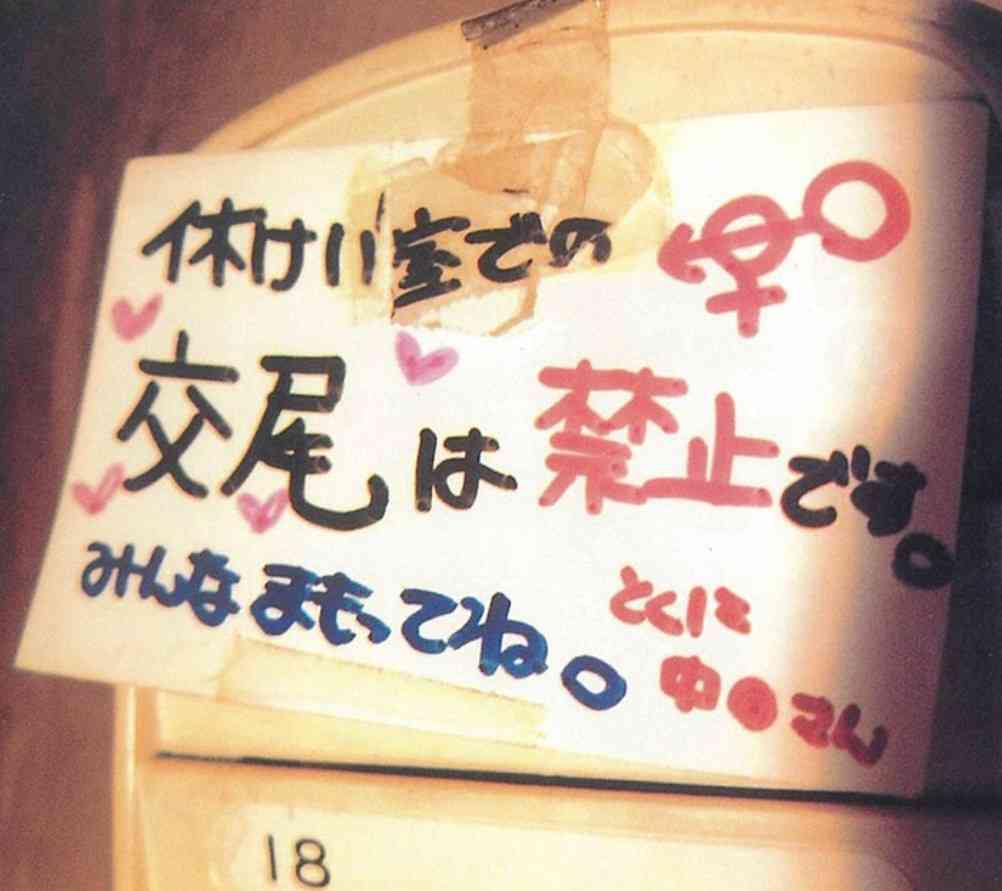 休けい室での
交尾は禁止です。
みんなまもってね。
とくに
中日さん
18